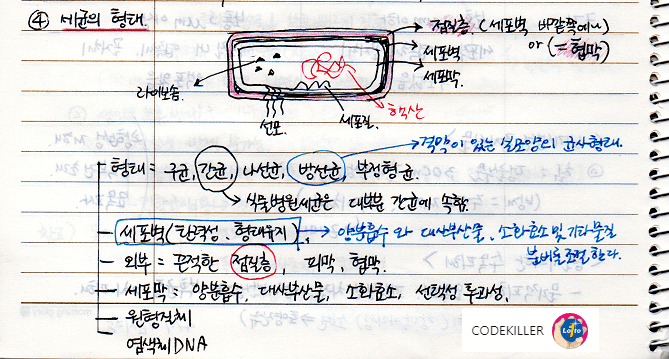 ④ 세균의 형태.
점질층 (세포벽 바깥쪽에 나)
or (= 협막)
세포벽
세포막.
라이보솜.
선모.
세포질.
핵산
격막이 있는 실모양의 균사형태.
형태 = 구균, 간균, 나선균, 방선균, 부정형균.
식물병원세균은 대부분 간균에 속함.
세포벽(탄력성, 형태유지)
양분흡수와 대사부산물, 소화효소 및 기타물질
분비를 조절한다.
외부 = 끈적한 점질층, 피막, 협막.
세포막 = 양분흡수, 대사부산물, 소화효소, 선택성 투과성,
원형질체
염색체 DNA
CODEKILLER Lofto